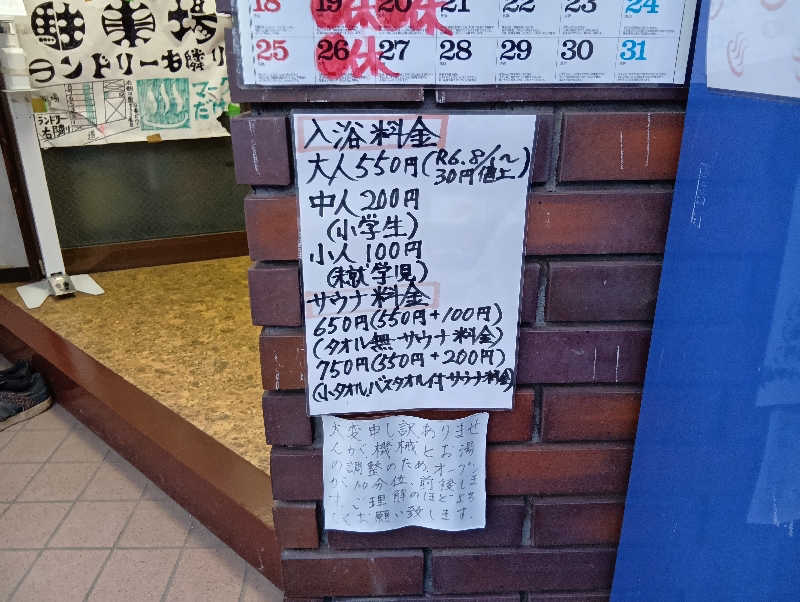 駐車場
ランドリー右隣り
ランドリー
右隣り
18 19 休 20 休 21 22 23 24
25 26 休 27 休 28 29 30 31
入浴料金
大人550円(R6.8/1~
30円値上)
中人200円
(小学生)
小人100円
(未就学児)
サウナ料金
650円(550円+100円)
(タオル無サウナ料金)
750円(550円+200円)
(小タオル、バスタオル付サウナ料金)
大変申し訳ありませ
んが、機械とお湯
の調整のため、オープン
が10分位、前後しま
す。理解のほどよろ
しくお願い致します。